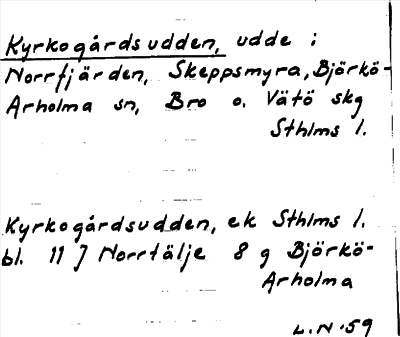 Kyrkogårdsudden, udde i
Norrfjärden, Skeppsmyra, Björkö-
Arholma sn, Bro o. Vätö skg
Sthlms l.
Kyrkogårdsudden, ek Sthlms l.
bl. 11 J Norrtälje 8 g Björkö-
Arholma
L.N.59